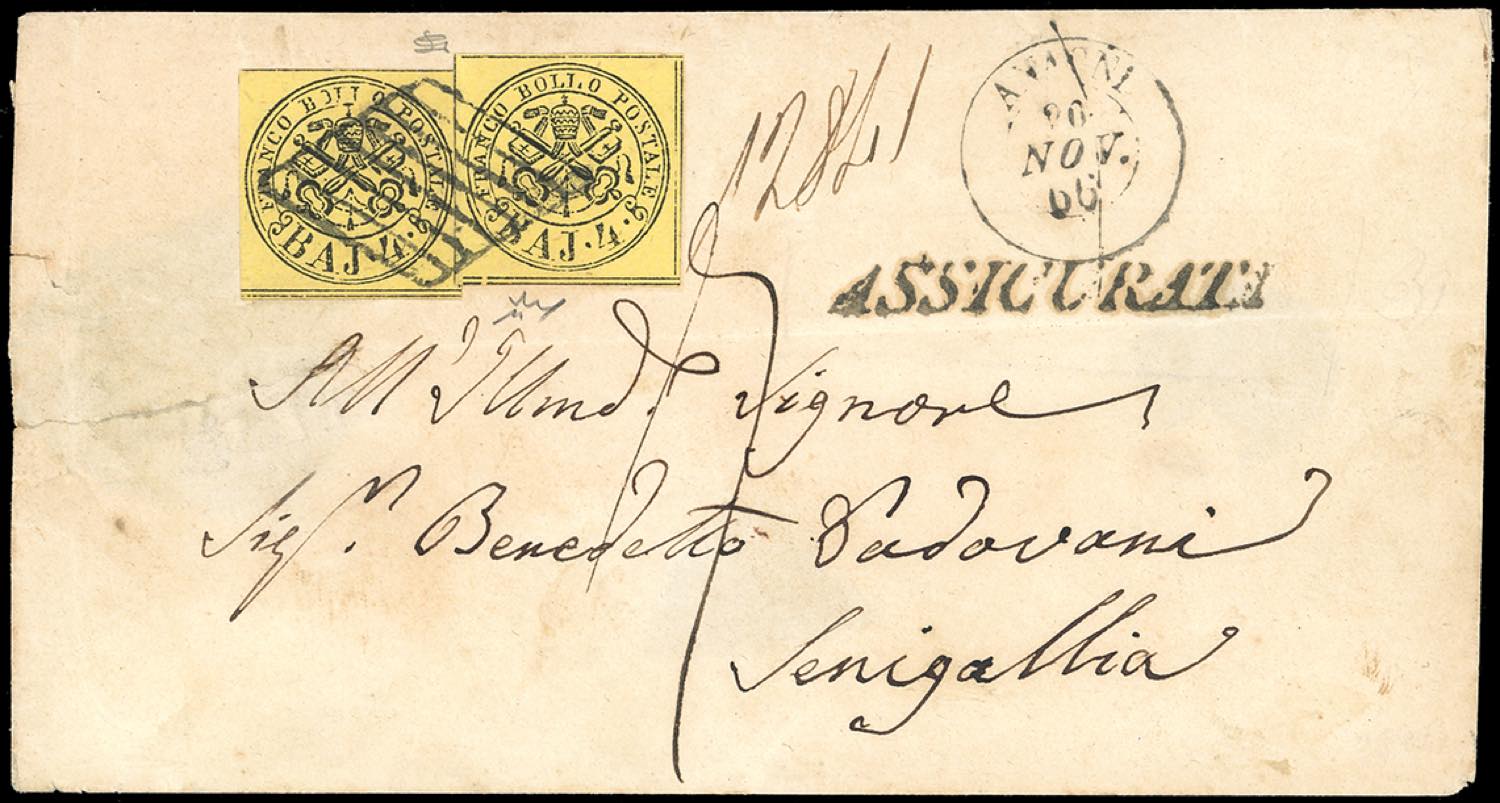 FRANCO BOLLO POSTALE
BAJ. 4.
FRANCO BOLLO POSTALE
BAJ. 4.
12841
ANAGNI
20
NOV.
66
ASSICURATI
All' Illmo. Signore
Sigr. Benedetto Padovani
Senigallia